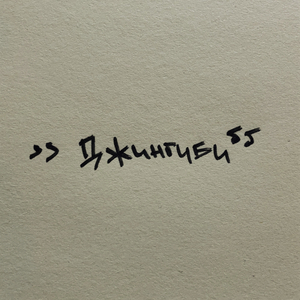 „Джингиби“